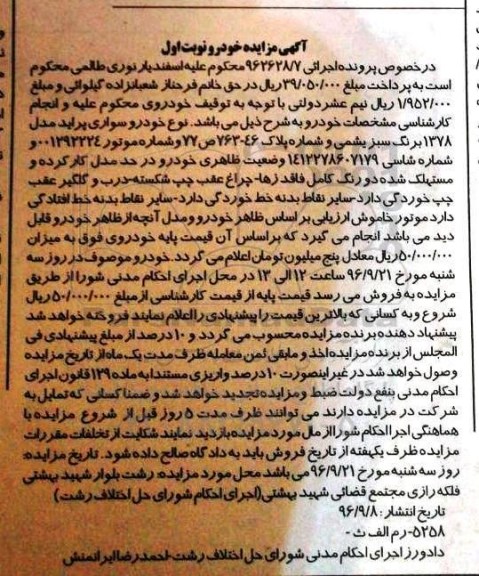 آگهی مزایده خودرو نوبت اول
در خصوص پرونده اجرائی ۹۶۲۶۲۸/۷ محکوم علیه اسفندیار نوری طالمی محکوم
است به پرداخت مبلغ ۳۹/۰۵۰/۰۰۰ ریال در حق خانم فرحناز شعبانزاده گیلوائی و مبلغ
۱/۹۵۲/۰۰۰ ریال نیم عشر دولتی با توجه به توقیف خودروی محکوم علیه و انجام
کارشناسی مشخصات خودرو به شرح ذیل می باشد. نوع خودرو سواری پراید مدل
۱۳۷۸ برنگ سبز یشمی و شماره پلاک ۴۶-۷۶۳ص۷۷ و شماره موتور ۰۰۱۳۹۲۲۴ و
شماره شاسی ۱۴۱۲۲۷۸۶۰۷۱۷۹ وضعیت ظاهری خودرو در حد مدل کار کرده و
مستهلک شده دو رنگ کامل فاقد زها-چراغ عقب چپ شکسته-درب و گلگیر عقب
چپ خوردگی دارد-سایر نقاط بدنه خط خوردگی دارد-سایر نقاط بدنه خط افتادگی
دارد موتور خاموش ارزیابی بر اساس ظاهر خودرو و مدل آنچه از ظاهر خودرو قابل
دید می باشد انجام می گیرد که بر اساس آن قیمت پایه خودروی فوق به میزان
۵۰/۰۰۰/۰۰۰ ریال معادل پنج میلیون تومان اعلام می گردد. خودرو موصوف در روز سه
شنبه مورخ ۹۶/۹/۲۱ ساعت ۱۲ الی ۱۳ در محل اجرای احکام مدنی شورا از طریق
مزایده به فروش می رسد قیمت پایه از قیمت کارشناسی از مبلغ ۵۰/۰۰۰/۰۰۰ ریال
شروع و به کسانی که بالاترین قیمت را پیشنهادی را اعلام نمایند فروخته خواهد شد
پیشنهاد دهنده برنده مزایده محسوب می گردد و ۱۰ درصد از مبلغ پیشنهادی فی
المجلس از برنده مزایده اخذ و مابقی ثمن معامله ظرف مدت یک ماه از تاریخ مزایده
وصول خواهد شد در غیر اینصورت ۱۰ درصد واریزی مستندا به ماده ۱۲۹ قانون اجرای
احکام مدنی بنفع دولت ضبط و مزایده تجدید خواهد شد و ضمنا کسانی که تمایل به
شرکت در مزایده دارند می توانند ظرف مدت ۵ روز قبل از شروع مزایده با
هماهنگی اجرا احکام شورا از مال مورد مزایده بازدید نمایند شکایت از تخلفات مقررات
مزایده ظرف یکهفته از تاریخ فروش باید به دادگاه صالح داده شود. تاریخ مزایده:
روز سه شنبه مورخ ۹۶/۹/۲۱ می باشد محل مورد مزایده: رشت بلوار شهید بهشتی
فلکه رازی مجتمع قضائی شهید بهشتی(اجرای احکام شورای حل اختلاف رشت)
تاریخ انتشار: ۹۶/۹/۸
۵۲۵۸-رم الف ث-
دادورز اجرای احکام مدنی شورای حل اختلاف رشت-احمدرضا ایرانمنش